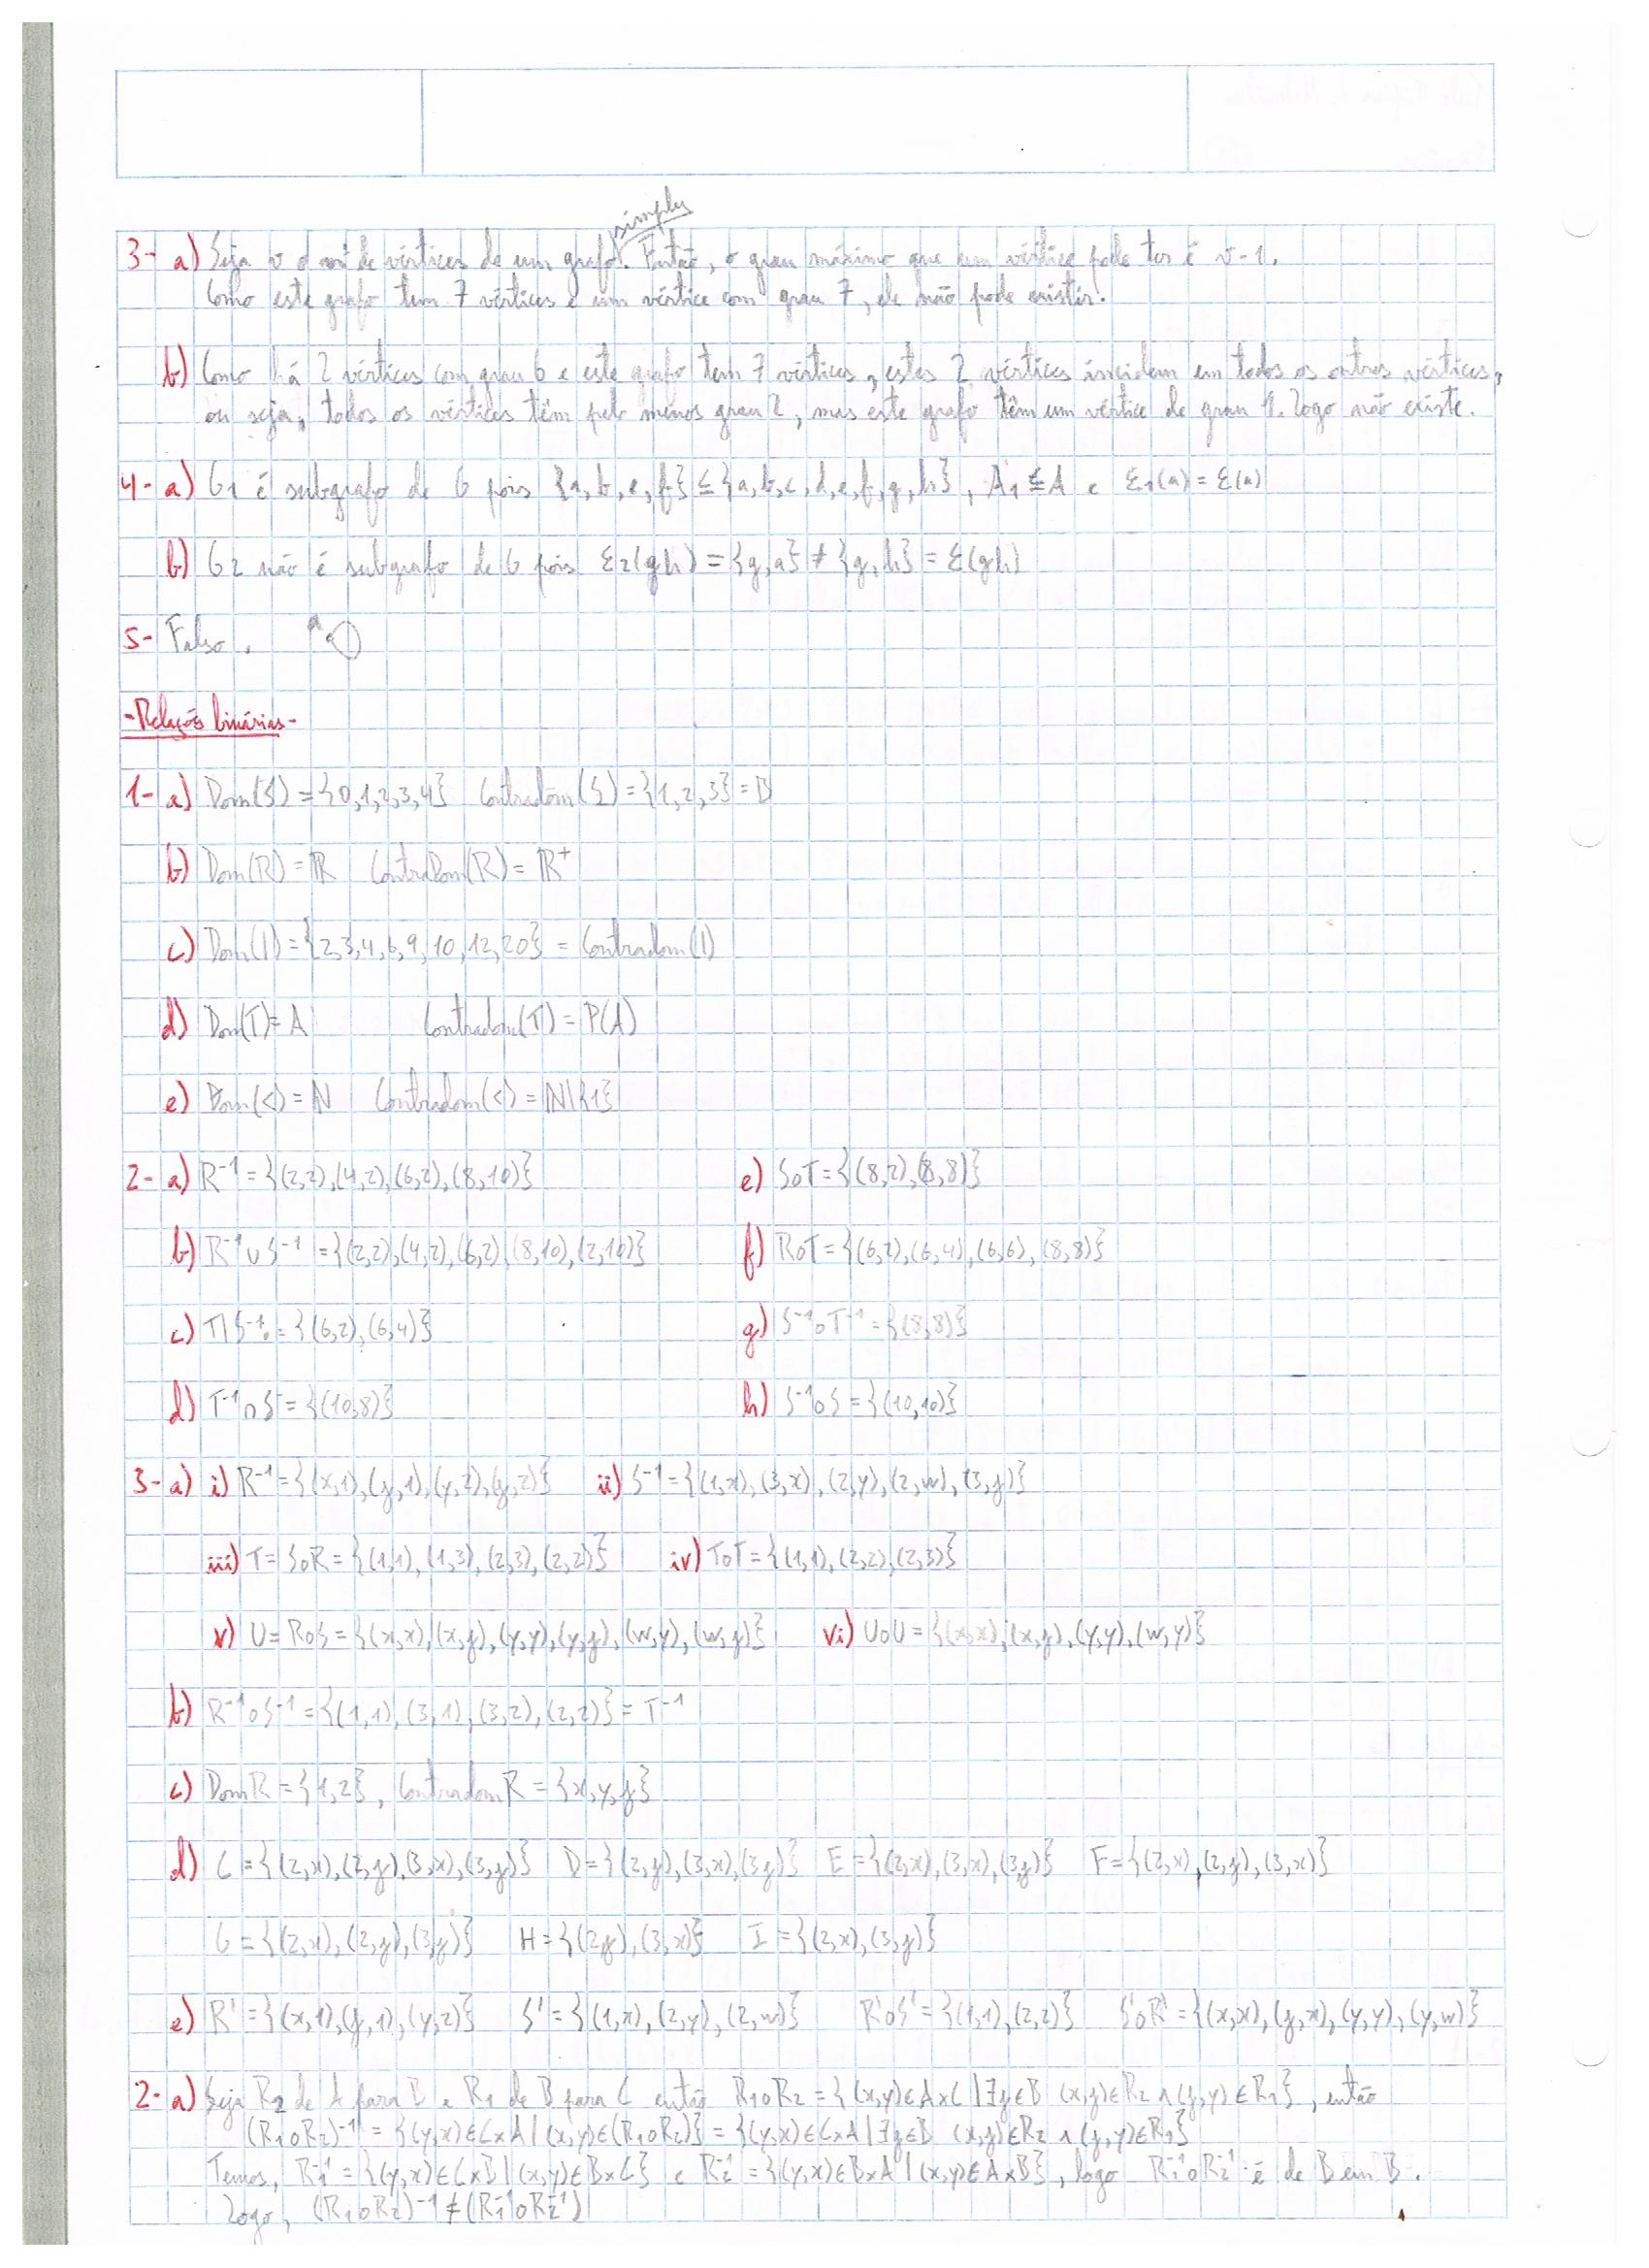 simples
3- a) Seja v o nº de vértices de um grafo. Então, o grau máximo que um vértice pode ter é v-1.
Como este grafo tem 7 vértices e um vértice com grau 7, ele não pode existir.
b) Como há 2 vértices com grau 6 e este grafo tem 7 vértices, estes 2 vértices incidem em todos os outros vértices,
ou seja, todos os vértices têm pelo menos grau 2, mas este grafo têm um vértice de grau 1. Logo não existe.
4- a) G1 é subgrafo de G pois {a,b,e,f} ⊆ {a,b,c,d,e,f,g,h}, A1 ⊆ A e Ɛ1(a) = Ɛ(a)
b) G2 não é subgrafo de G pois Ɛ2(gh) = {g,a} ≠ {g,h} = Ɛ(gh)
5- Falso. a
-Relações binárias-
1- a) Dom(S) = {0,1,2,3,4} Contradom(S) = {1,2,3} = B
b) Dom(R) = ℝ ContraDom(R) = ℝ+
c) Dom(|) = {2,3,4,6,9,10,12,20} = Contradom(|)
d) Dom(T) = A Contradom(T) = P(A)
e) Dom(<) = ℕ Contradom(<) = ℕ\{1}
2- a) R⁻¹ = {(2,2),(4,2),(6,2),(8,10)} e) S∘T = {(8,2),(8,8)}
b) R⁻¹∪S⁻¹ = {(2,2),(4,2),(6,2),(8,10),(2,10)} f) R∘T = {(6,2),(6,4),(6,6),(8,8)}
c) T\S⁻¹ = {(6,2),(6,4)} g) S⁻¹∘T⁻¹ = {(8,8)}
d) T⁻¹∩S = {(10,8)} h) S⁻¹∘S = {(10,10)}
3- a) i) R⁻¹ = {(x,1),(z,1),(y,2),(z,2)} ii) S⁻¹ = {(1,x),(3,x),(2,y),(2,w),(3,z)}
iii) T = S∘R = {(1,1),(1,3),(2,3),(2,2)} iv) T∘T = {(1,1),(2,2),(2,3)}
v) U = R∘S = {(x,x),(x,z),(y,y),(y,z),(w,y),(w,z)} vi) U∘U = {(x,x),(x,z),(y,y),(w,y)}
b) R⁻¹∘S⁻¹ = {(1,1),(3,1),(3,2),(2,2)} = T⁻¹
c) DomR = {1,2}, ContradomR = {x,y,z}
d) C = {(2,x),(2,z),(3,x),(3,z)} D = {(2,z),(3,x),(3,z)} E = {(2,x),(3,x),(3,z)} F = {(2,x),(2,z),(3,x)}
G = {(2,x),(2,z),(3,z)} H = {(2,z),(3,x)} I = {(2,x),(3,z)}
e) R' = {(x,1),(z,1),(y,2)} S' = {(1,x),(2,y),(2,w)} R'∘S' = {(1,1),(2,2)} S'∘R' = {(x,x),(z,x),(y,y),(y,w)}
2- a) Seja R2 de A para B e R1 de B para C então R1∘R2 = {(x,y)∈A×C | ∃z∈B (x,z)∈R2 ∧ (z,y)∈R1}, então
(R1∘R2)⁻¹ = {(y,x)∈C×A | (x,y)∈(R1∘R2)} = {(y,x)∈C×A | ∃z∈B (x,z)∈R2 ∧ (z,y)∈R1}
Temos, R1⁻¹ = {(y,x)∈C×B | (x,y)∈B×C} e R2⁻¹ = {(y,x)∈B×A | (x,y)∈A×B}, logo R1⁻¹∘R2⁻¹ é de B em B.
Logo, (R1∘R2)⁻¹ ≠ (R1⁻¹∘R2⁻¹)